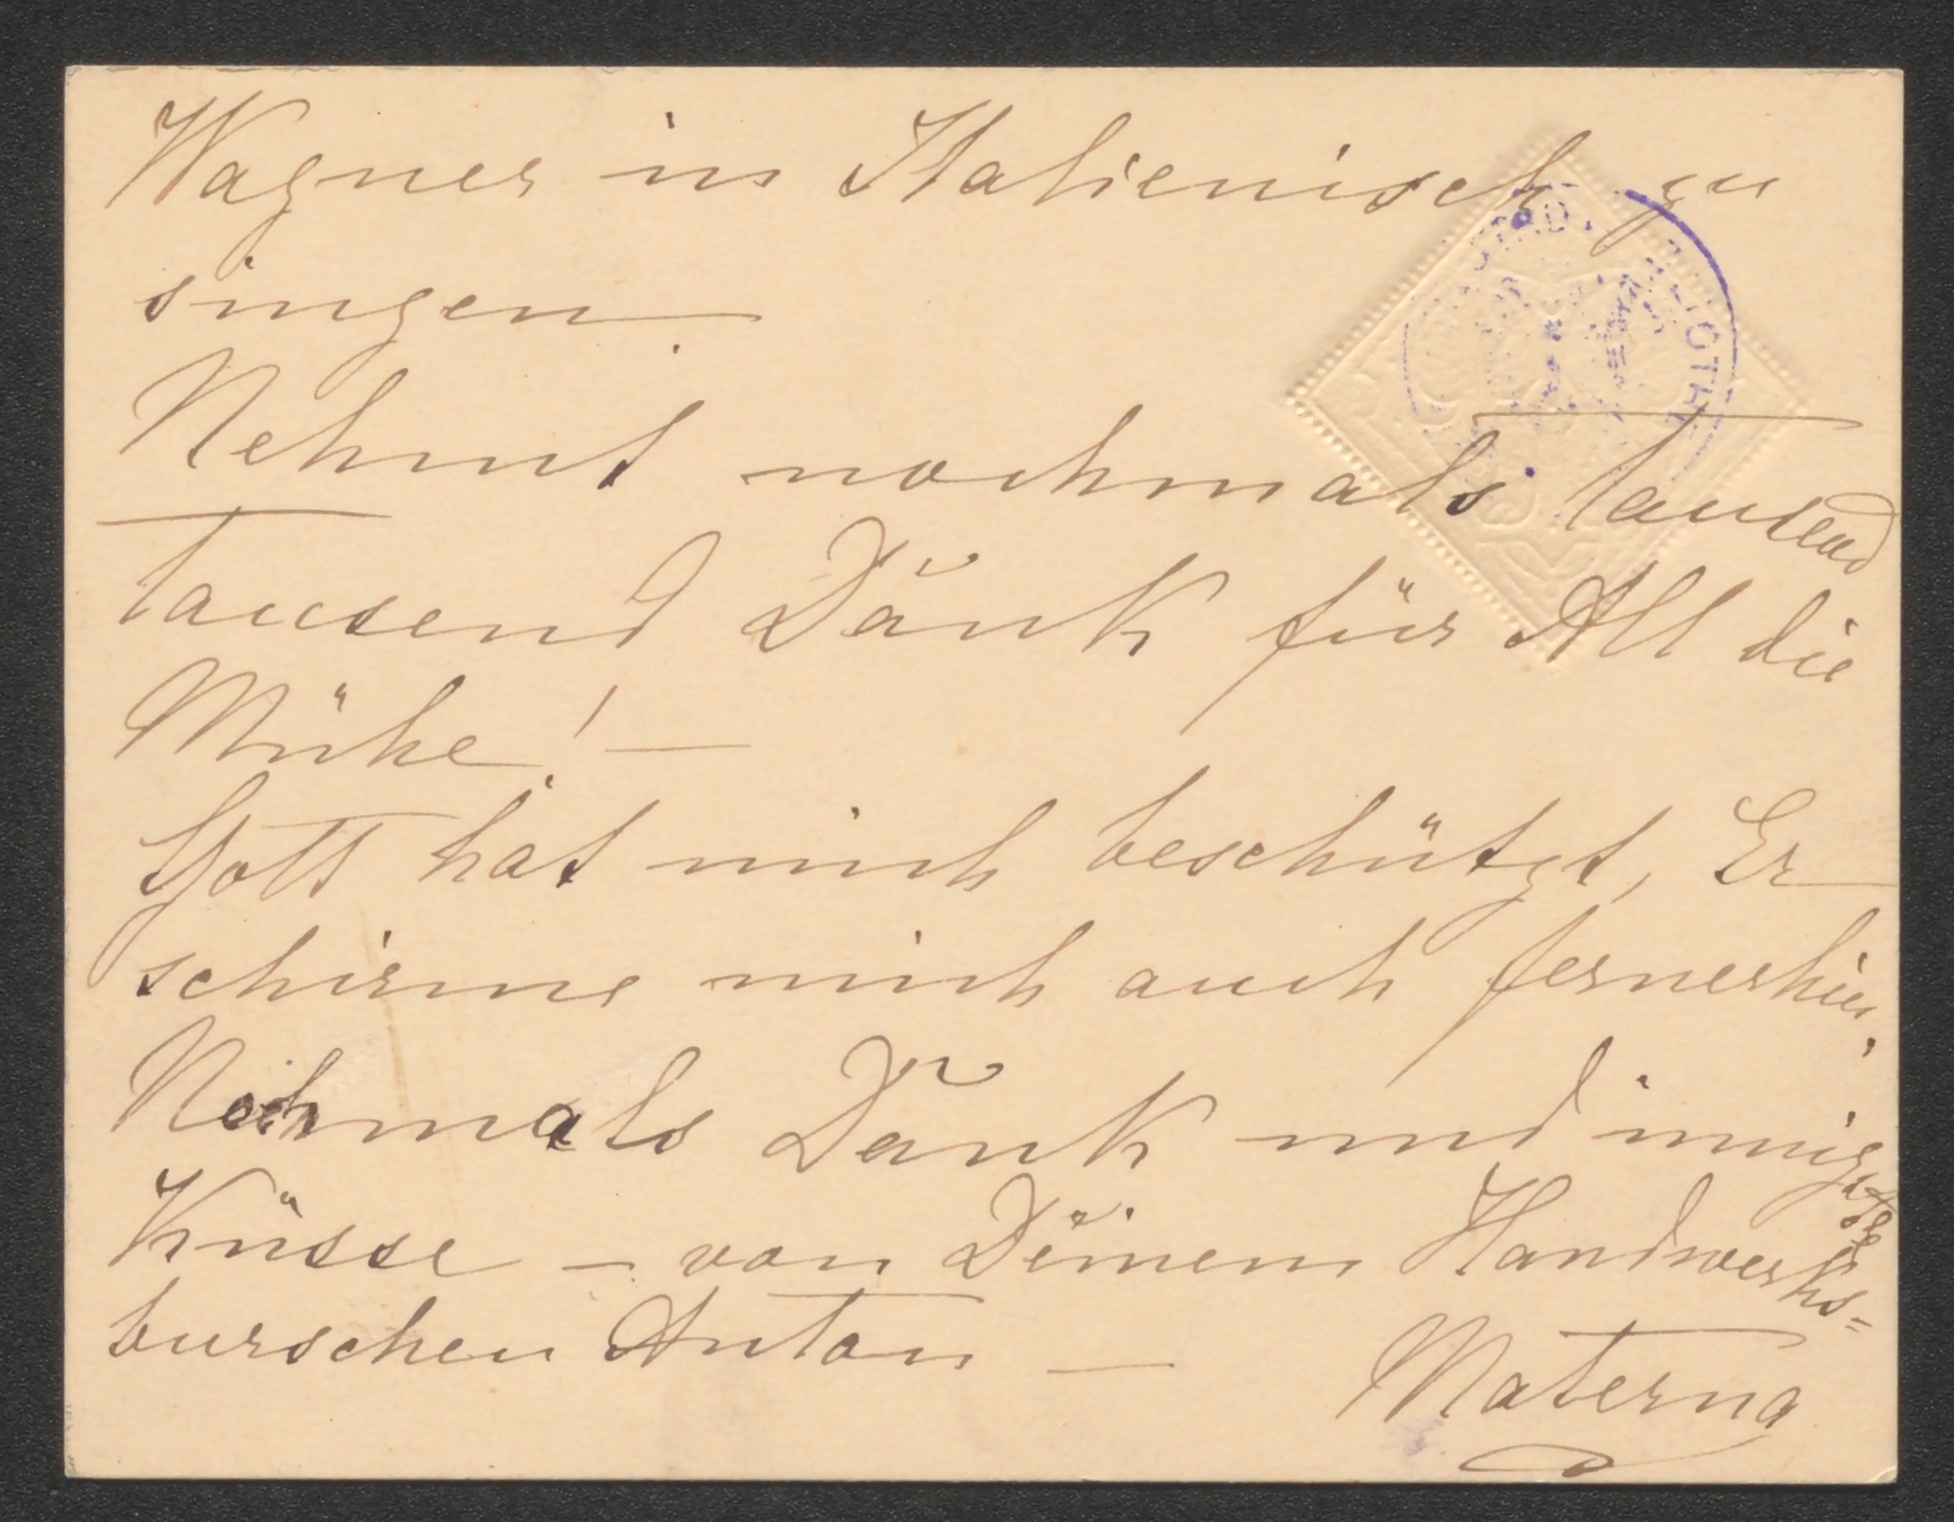 Wagner in Italienisch zu
singen
Nehmt nochmals tausend
tausend Dank für All die
Mühe! —
Gott hat mich beschützt, Er
schirme mich auch fernerhin,
Nochmals Dank und innigste
Küsse – von Deinem Handwerks=
burschen Anton —
Materna